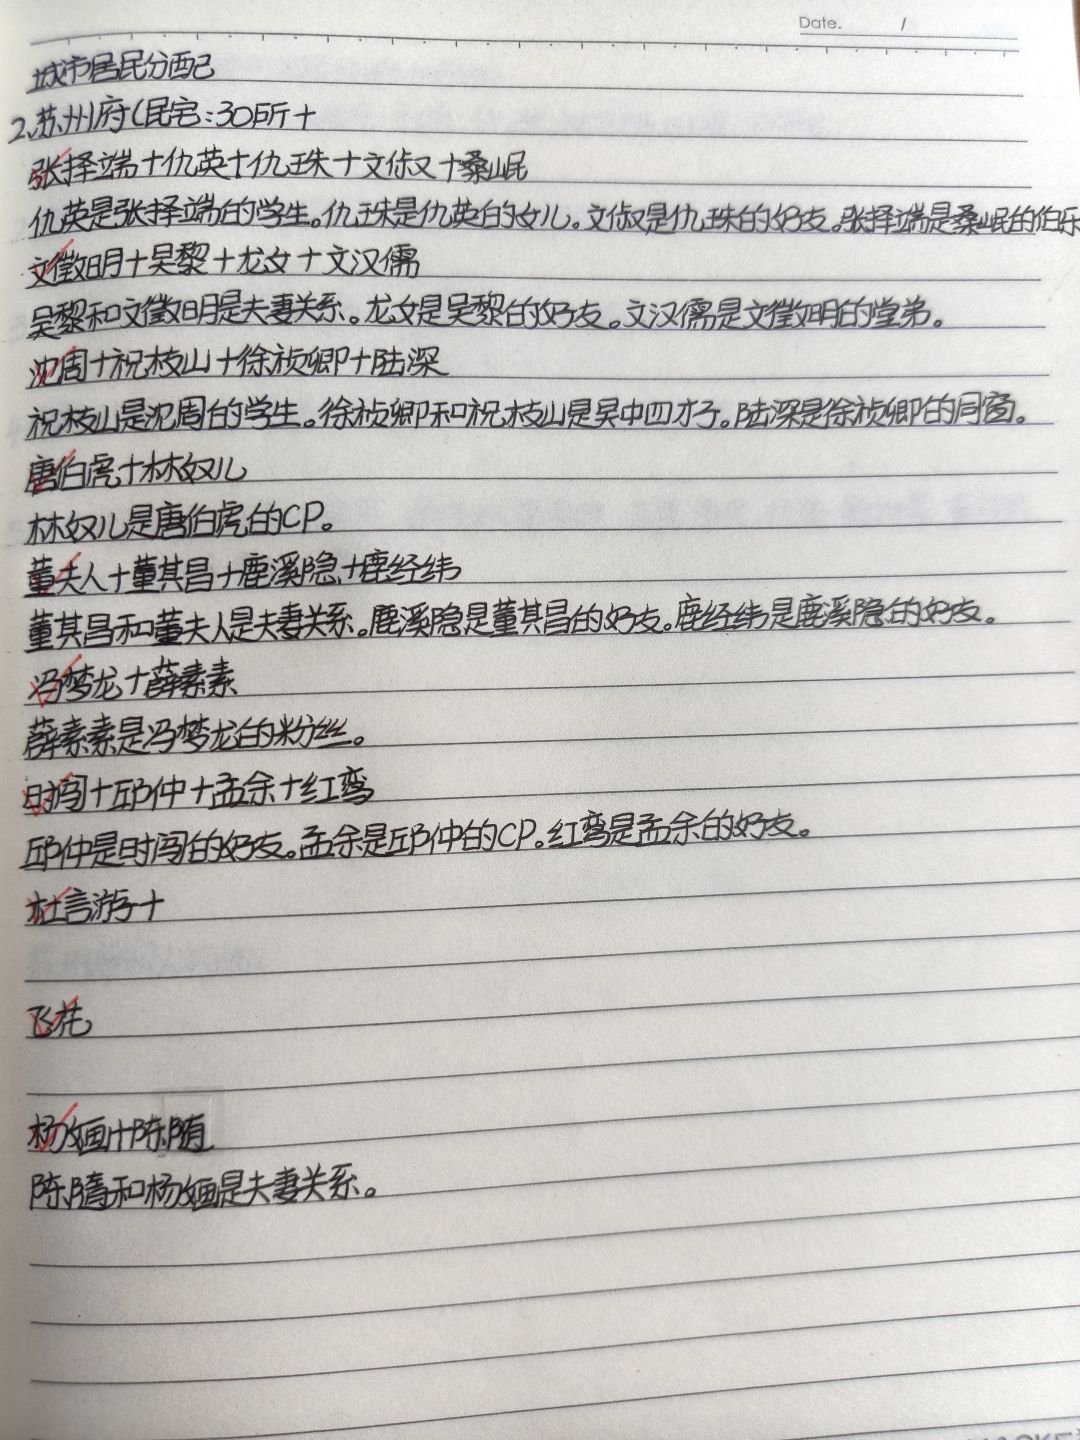 Date. /
城市居民分配
2、苏州府(民宅:30所+
张择端+仇英+仇珠+文俶+桑岷
仇英是张择端的学生。仇珠是仇英的女儿。文俶是仇珠的好友。张择端是桑岷的伯乐
文徵明+吴黎+龙女+文汉儒
吴黎和文徵明是夫妻关系。龙女是吴黎的好友。文汉儒是文徵明的堂弟。
沈周+祝枝山+徐祯卿+陆深
祝枝山是沈周的学生。徐祯卿和祝枝山是吴中四才子。陆深是徐祯卿的同窗。
唐伯虎+林奴儿
林奴儿是唐伯虎的CP。
董夫人+董其昌+鹿溪隐+鹿经纬
董其昌和董夫人是夫妻关系。鹿溪隐是董其昌的好友。鹿经纬是鹿溪隐的好友。
冯梦龙+薛素素
薛素素是冯梦龙的粉丝。
时闯+邱仲+孟余+红鸾
邱仲是时闯的好友。孟余是邱仲的CP。红鸾是孟余的好友。
杜言游+
飞花
杨婳+陈隋
陈隋和杨婳是夫妻关系。